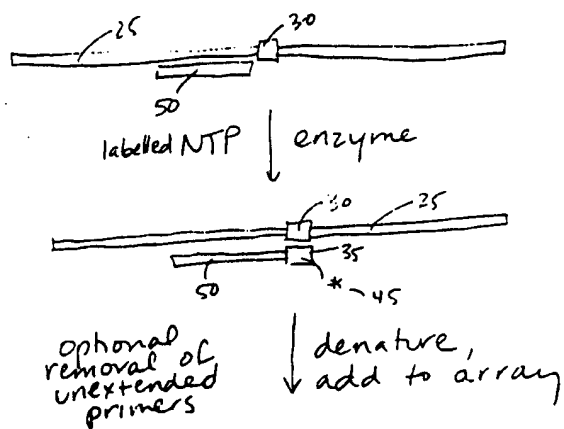 25
30
50
labelled NTP
enzyme
30
25
35
50
* 45
optional
removal of
unextended
primers
denature,
add to array